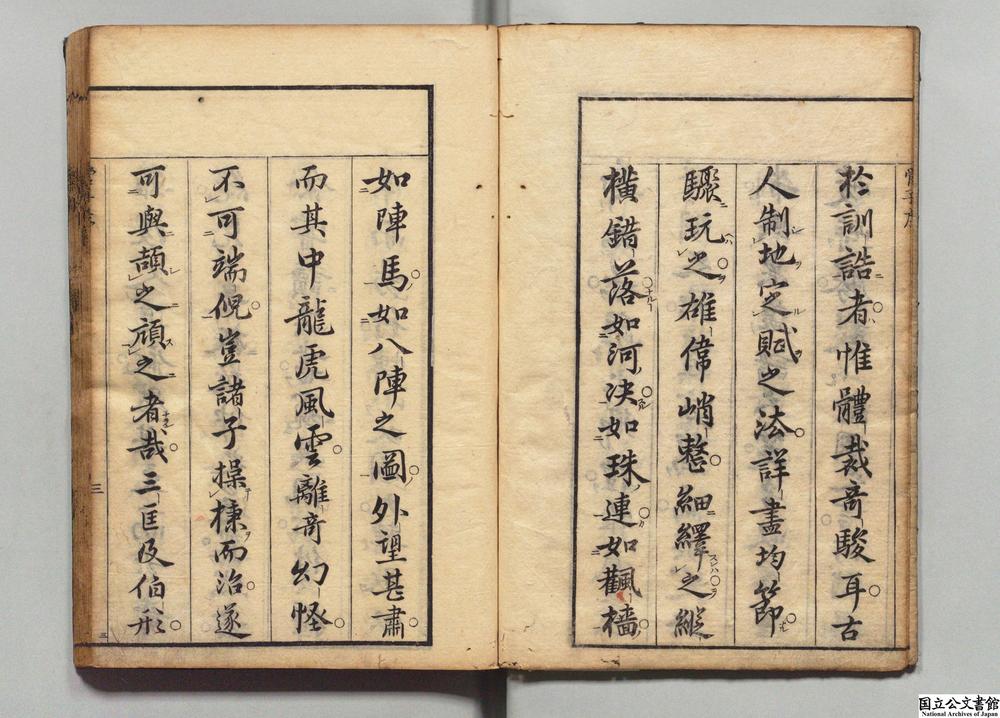 於訓誥者惟體裁奇駿耳古
人制地定賦之法詳盡均節
驟玩之雄偉峭整細繹之縱
橫錯落如河決如珠連如颿檣
如陣馬如八陣之圖外望甚肅
而其中龍虎風雲離奇幻怪
不可端倪豈諸子操槧而治遂
可與頡之頏之者哉三匡及伯形
三
国立公文書館
National Archives of Japan